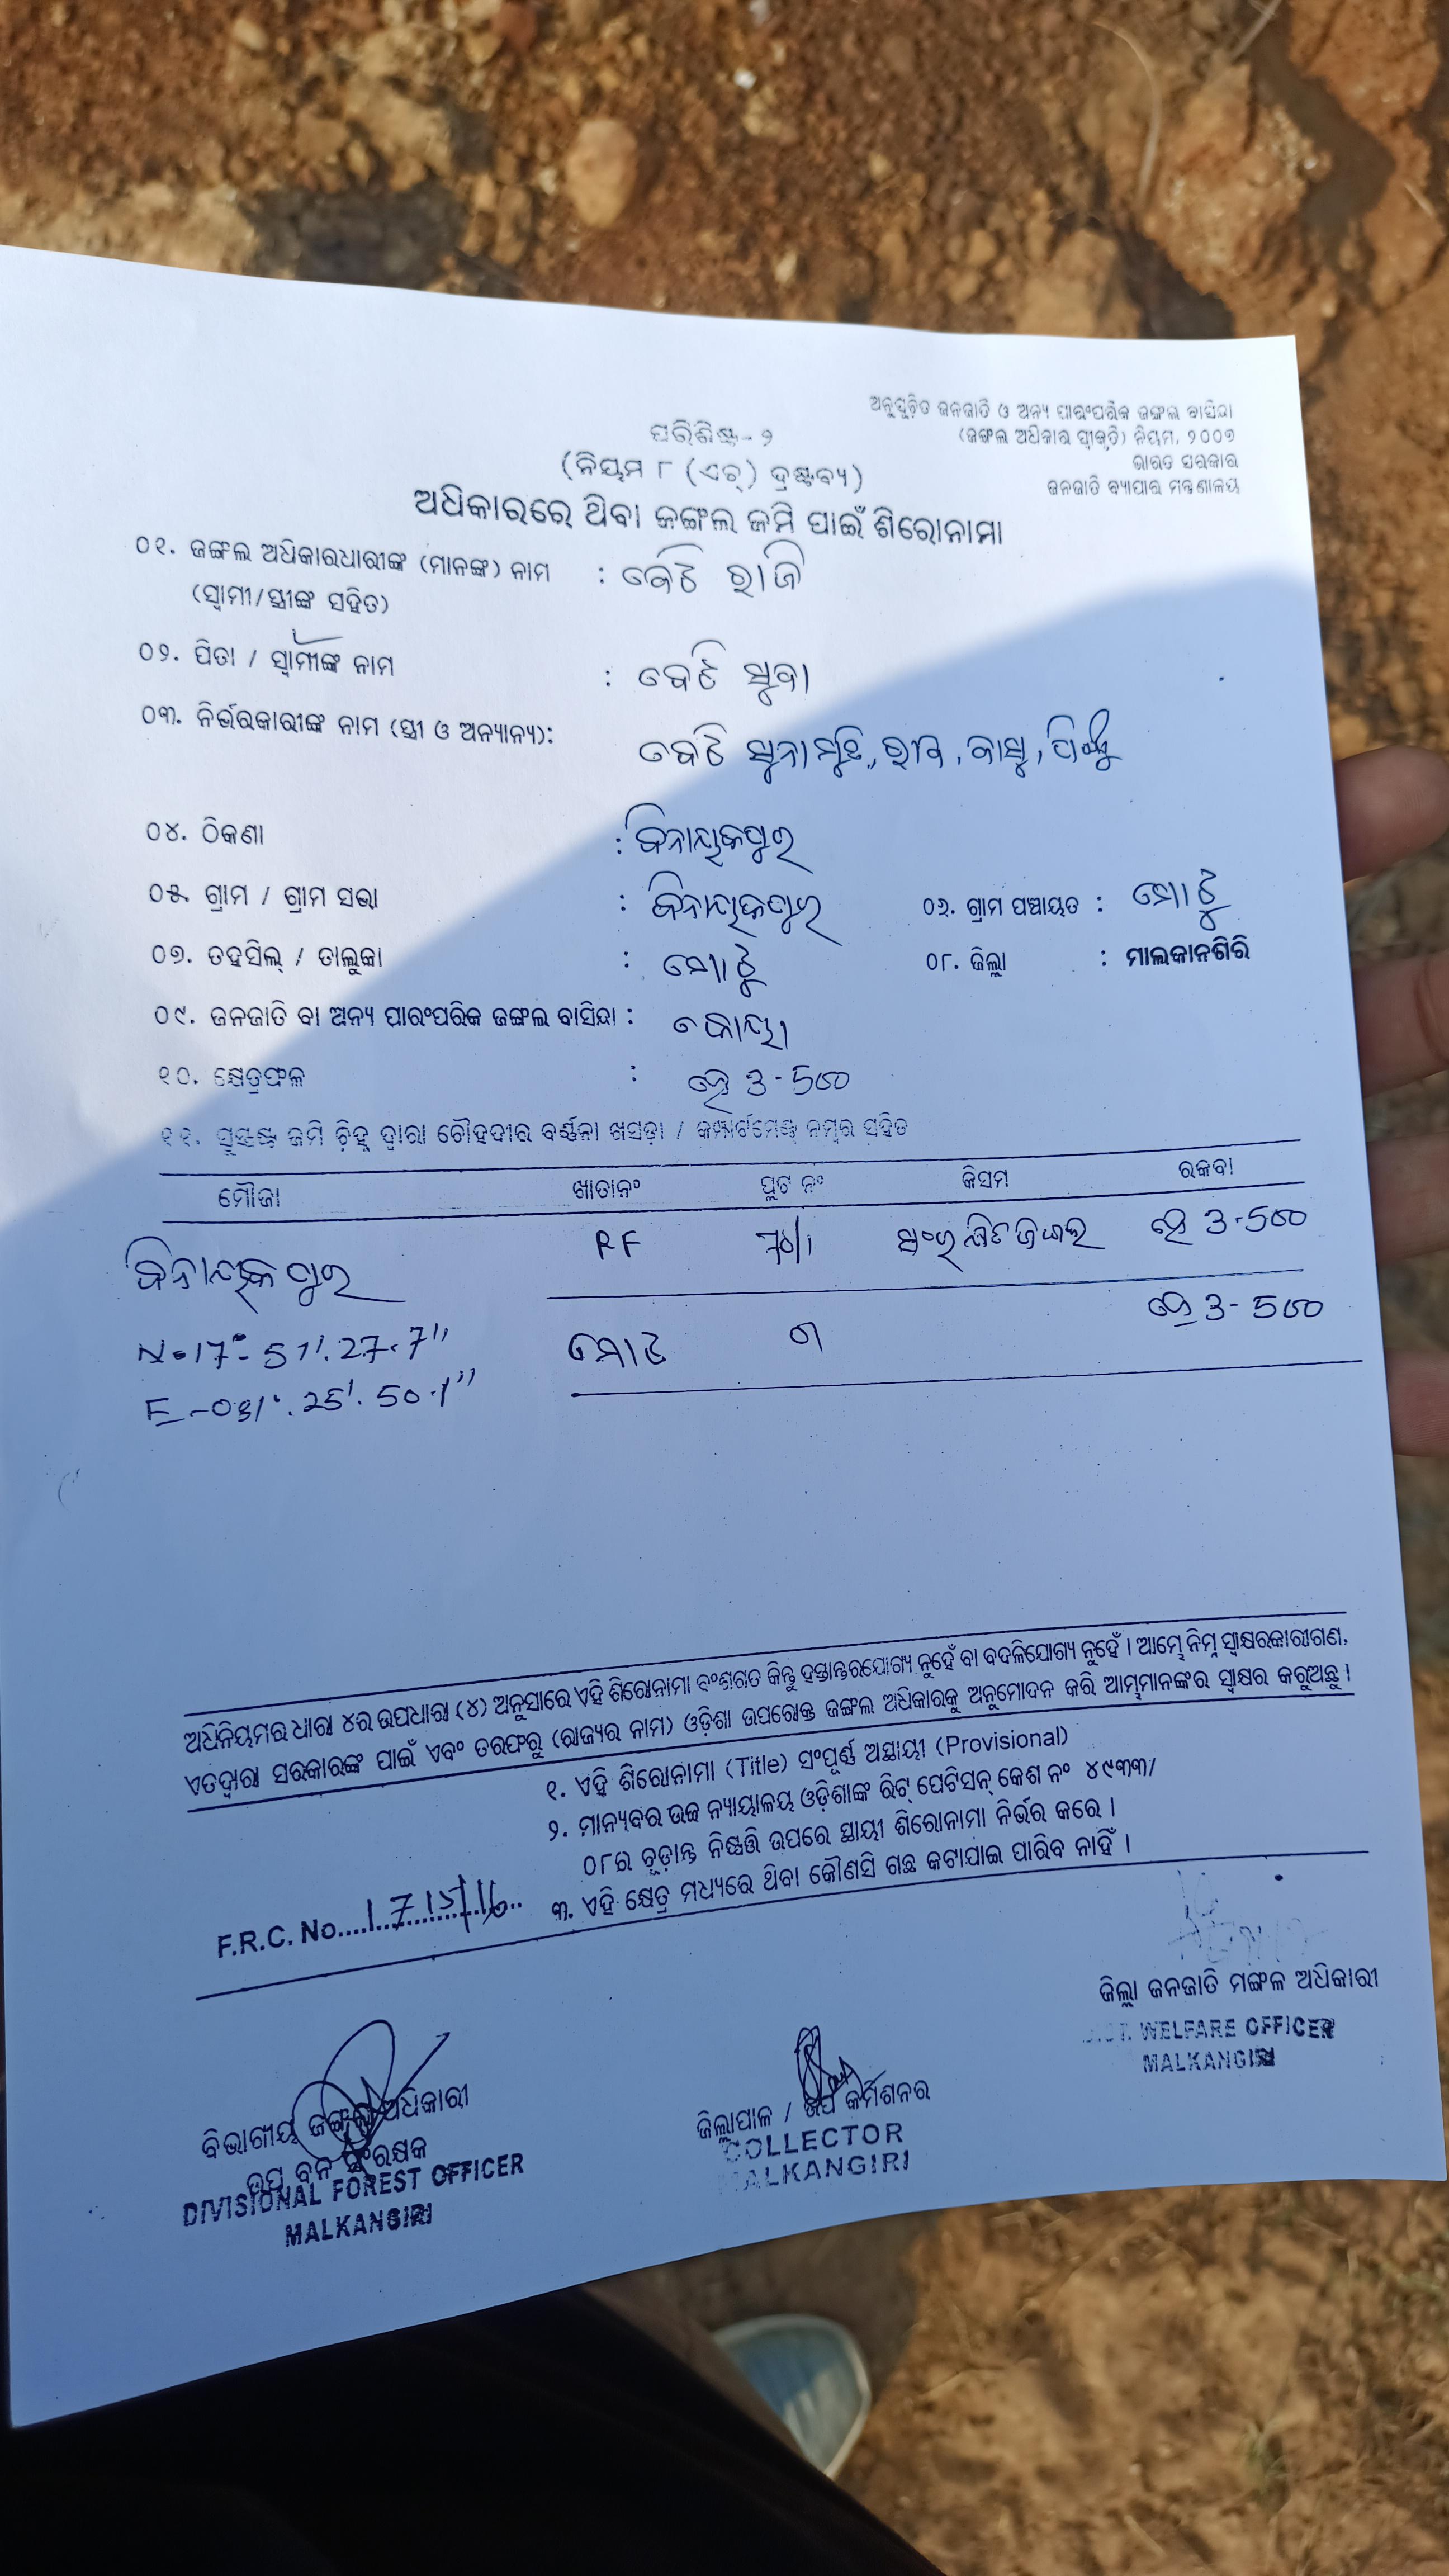 ଅନୁସୂଚିତ ଜନଜାତି ଓ ଅନ୍ୟ ପାରଂପରିକ ଜଙ୍ଗଲ ବାସିନ୍ଦା
(ଜଙ୍ଗଲ ଅଧିକାର ସ୍ୱୀକୃତି) ନିୟମ, ୨୦୦୭
ଭାରତ ସରକାର
ଜନଜାତି ବ୍ୟାପାର ମନ୍ତ୍ରଣାଳୟ
ପରିଶିଷ୍ଟ - ୨
(ନିୟମ ୮ (ଏଚ୍) ଦ୍ରଷ୍ଟବ୍ୟ)
ଅଧିକାରରେ ଥିବା ଜଙ୍ଗଲ ଜମି ପାଇଁ ଶିରୋନାମା
୦୧. ଜଙ୍ଗଲ ଅଧିକାରଧାରୀଙ୍କ (ମାନଙ୍କ) ନାମ :
(ସ୍ୱାମୀ/ସ୍ତ୍ରୀଙ୍କ ସହିତ)
୦୨. ପିତା / ସ୍ୱାମୀଙ୍କ ନାମ :
୦୩. ନିର୍ଭରକାରୀଙ୍କ ନାମ (ସ୍ତ୍ରୀ ଓ ଅନ୍ୟାନ୍ୟ):
୦୪. ଠିକଣା : ବିନାୟକପୁର
୦୫. ଗ୍ରାମ / ଗ୍ରାମ ସଭା : ବିନାୟକପୁର ୦୬. ଗ୍ରାମ ପଞ୍ଚାୟତ : ମୋଟୁ
୦୭. ତହସିଲ୍ / ତାଲୁକା : ମୋଟୁ ୦୮. ଜିଲ୍ଲା : ମାଲକାନଗିରି
୦୯. ଜନଜାତି ବା ଅନ୍ୟ ପାରଂପରିକ ଜଙ୍ଗଲ ବାସିନ୍ଦା : କୋୟା
୧୦. କ୍ଷେତ୍ରଫଳ : ହେ 3-500
୧୧. ସୁସ୍ପଷ୍ଟ ଜମି ଚିହ୍ନ ଦ୍ୱାରା ଚୌହଦୀର ବର୍ଣ୍ଣନା ଖସଡ଼ା / କମ୍ପାର୍ଟମେଣ୍ଟ ନମ୍ବର ସହିତ
ମୌଜା ଖାତାନଂ ପ୍ଲଟ ନଂ କିସମ ରକବା
ବିନାୟକପୁର RF 70/1 ସଂରକ୍ଷିତ ଜଙ୍ଗଲ ହେ 3-500
N-17°-51'.27.7" ମୋଟ ୧ ହେ 3-500
E-081°.25'.50.1"
ଅଧିନିୟମର ଧାରା ୪ର ଉପଧାରା (୪) ଅନୁସାରେ ଏହି ଶିରୋନାମା ବଂଶଗତ କିନ୍ତୁ ହସ୍ତାନ୍ତରଯୋଗ୍ୟ ନୁହେଁ ବା ବଦଳିଯୋଗ୍ୟ ନୁହେଁ । ଆମ୍ଭେ ନିମ୍ନ ସ୍ୱାକ୍ଷରକାରୀଗଣ,
ଏତଦ୍ୱାରା ସରକାରଙ୍କ ପାଇଁ ଏବଂ ତରଫରୁ (ରାଜ୍ୟର ନାମ) ଓଡ଼ିଶା ଉପରୋକ୍ତ ଜଙ୍ଗଲ ଅଧିକାରକୁ ଅନୁମୋଦନ କରି ଆମ୍ଭମାନଙ୍କର ସ୍ୱାକ୍ଷର କରୁଅଛୁ ।
୧. ଏହି ଶିରୋନାମା (Title) ସଂପୂର୍ଣ୍ଣ ଅସ୍ଥାୟୀ (Provisional)
୨. ମାନ୍ୟବର ଉଚ୍ଚ ନ୍ୟାୟାଳୟ ଓଡ଼ିଶାଙ୍କ ରିଟ୍ ପେଟିସନ୍ କେଶ ନଂ ୪୯୩୩/
୦୮ର ଚୂଡ଼ାନ୍ତ ନିଷ୍ପତ୍ତି ଉପରେ ସ୍ଥାୟୀ ଶିରୋନାମା ନିର୍ଭର କରେ ।
୩. ଏହି କ୍ଷେତ୍ର ମଧ୍ୟରେ ଥିବା କୌଣସି ଗଛ କଟାଯାଇ ପାରିବ ନାହିଁ ।
F.R.C. No....
ଜିଲ୍ଲା ଜନଜାତି ମଙ୍ଗଳ ଅଧିକାରୀ
DIST. WELFARE OFFICER
MALKANGIRI
ବିଭାଗୀୟ ଜଙ୍ଗଲ ଅଧିକାରୀ
ଉପ ବନ ସଂରକ୍ଷକ
DIVISIONAL FOREST OFFICER
MALKANGIRI
ଜିଲ୍ଲାପାଳ / ଉପ କମିଶନର
COLLECTOR
MALKANGIRI